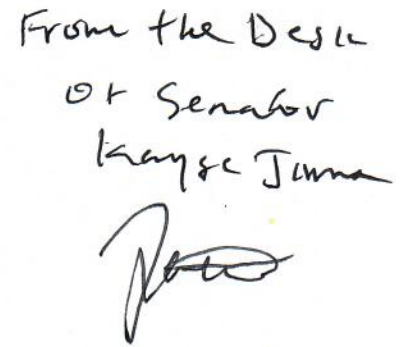 From the Desk
Of Senator
Kayse Jama